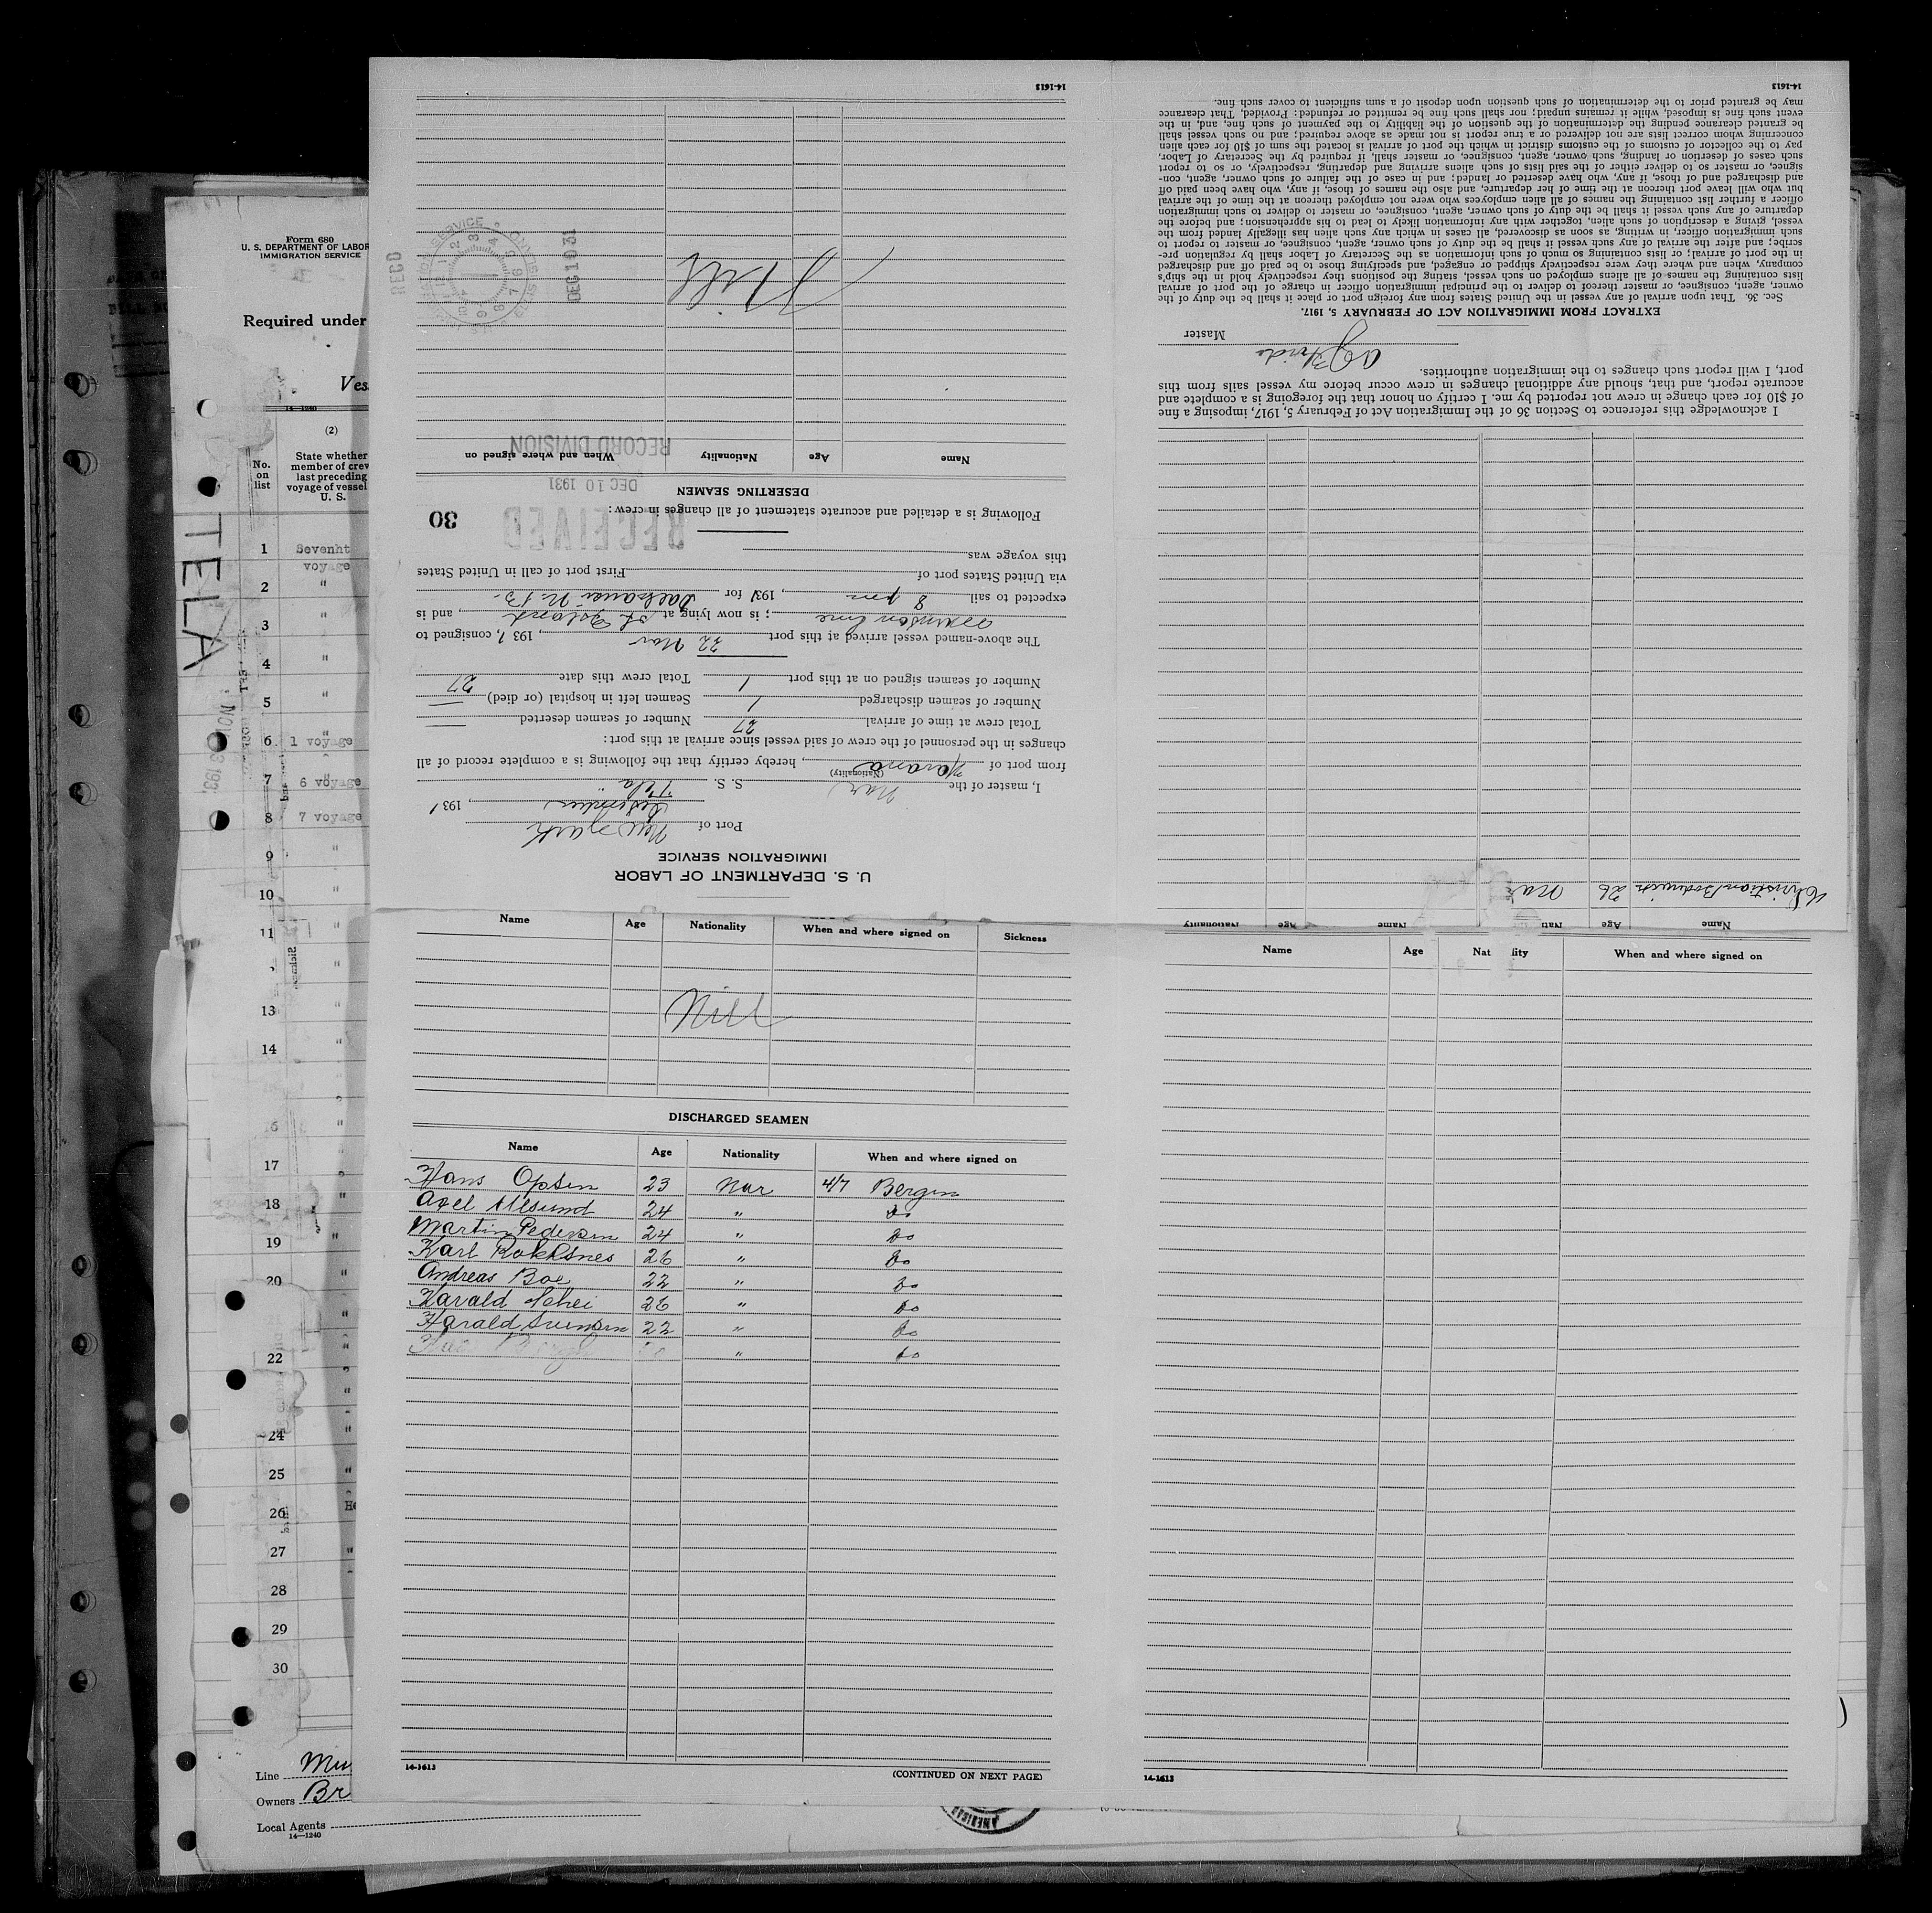 Form 680
U. S. DEPARTMENT OF LABOR
IMMIGRATION SERVICE
Required under
Ves
14—1240
(2)
No. on list
State whether
member of crew
last preceding
voyage of vessel
U. S.
TELA
1 Sevenht
voyage
2 "
3 "
4 "
5 "
6 1 voyage
7 6 voyage
8 7 voyage
9 "
10 "
11 "
13 "
14 "
16 "
17 "
18 "
19 "
20 "
22 "
24 "
25 "
26 He
27 "
28
29
30
Line Mu
Owners Br
Local Agents
14—1240
U. S. DEPARTMENT OF LABOR
IMMIGRATION SERVICE
Port of New York
December, 1931
I, master of the Nor S. S. Tela
(Nationality)
from port of Havana, hereby certify that the following is a complete record of all
changes in the personnel of the crew of said vessel since arrival at this port:
Total crew at time of arrival 27 Number of seamen deserted —
Number of seamen discharged 1 Seamen left in hospital (or died) —
Number of seamen signed on at this port 1 Total crew this date 27
The above-named vessel arrived at this port 22 Nov, 1931, consigned to
Munson Line; is now lying at St. Island, and is
expected to sail 8 pm, 1931 for N. B.
via United States port of First port of call in United States
this voyage was
30
RECEIVED
DEC 10 1931
RECORD DIVISION
Following is a detailed and accurate statement of all changes in crew:
DESERTING SEAMEN
Name Age Nationality When and where signed on
Nill
REC'D
DEC 10 31
14-1613
Name Age Nationality Name Age Nationality
Christian 26 Nor
I acknowledge this reference to Section 36 of the Immigration Act of February 5, 1917, imposing a fine
of $10 for each change in crew not reported by me. I certify on honor that the foregoing is a complete and
accurate report, and that, should any additional changes in crew occur before my vessel sails from this
port, I will report such changes to the immigration authorities.
Master
EXTRACT FROM IMMIGRATION ACT OF FEBRUARY 5, 1917.
Sec. 36. That upon arrival of any vessel in the United States from any foreign port or place it shall be the duty of the
owner, agent, consignee, or master thereof to deliver to the principal immigration officer in charge of the port of arrival
lists containing the names of all aliens employed on such vessel, stating the positions they respectively hold in the ship's
company, when and where they were respectively shipped or engaged, and specifying those to be paid off and discharged
in the port of arrival; or lists containing so much of such information as the Secretary of Labor shall by regulation pre-
scribe; and after the arrival of any such vessel it shall be the duty of such owner, agent, consignee, or master to report to
such immigration officer, in writing, as soon as discovered, all cases in which any such alien has illegally landed from the
vessel, giving a description of such alien, together with any information likely to lead to his apprehension; and before the
departure of any such vessel it shall be the duty of such owner, agent, consignee, or master to deliver to such immigration
officer a further list containing the names of all alien employees who were not employed thereon at the time of the arrival
but who will leave port thereon at the time of her departure, and also the names of those, if any, who have been paid off
and discharged and of those, if any, who have deserted or landed; and in case of the failure of such owner, agent, con-
signee, or master so to deliver either of the said lists of such aliens arriving and departing, respectively, or so to report
such cases of desertion or landing, such owner, agent, consignee, or master shall, if required by the Secretary of Labor,
pay to the collector of customs of the customs district in which the port of arrival is located the sum of $10 for each alien
concerning whom correct lists are not delivered or a true report is not made as above required; and no such vessel shall
be granted clearance pending the determination of the question of the liability to the payment of such fine, and, in the
event such fine is imposed, while it remains unpaid; nor shall such fine be remitted or refunded: Provided, That clearance
may be granted prior to the determination of such question upon deposit of a sum sufficient to cover such fine.
14-1613
Name Age Nationality When and where signed on Sickness
Nill
DISCHARGED SEAMEN
Name Age Nationality When and where signed on
Hans Opsen 23 Nor 4/7 Bergen
Axel Alesund 24 " Do
Martin Pedersen 24 " Do
Karl Rokksnes 26 " Do
Andreas Boe 22 " Do
Harald Schei 26 " Do
Harald Svensen 22 " Do
" Do
14-1613
(CONTINUED ON NEXT PAGE)
Name Age Nationality When and where signed on
14-1613